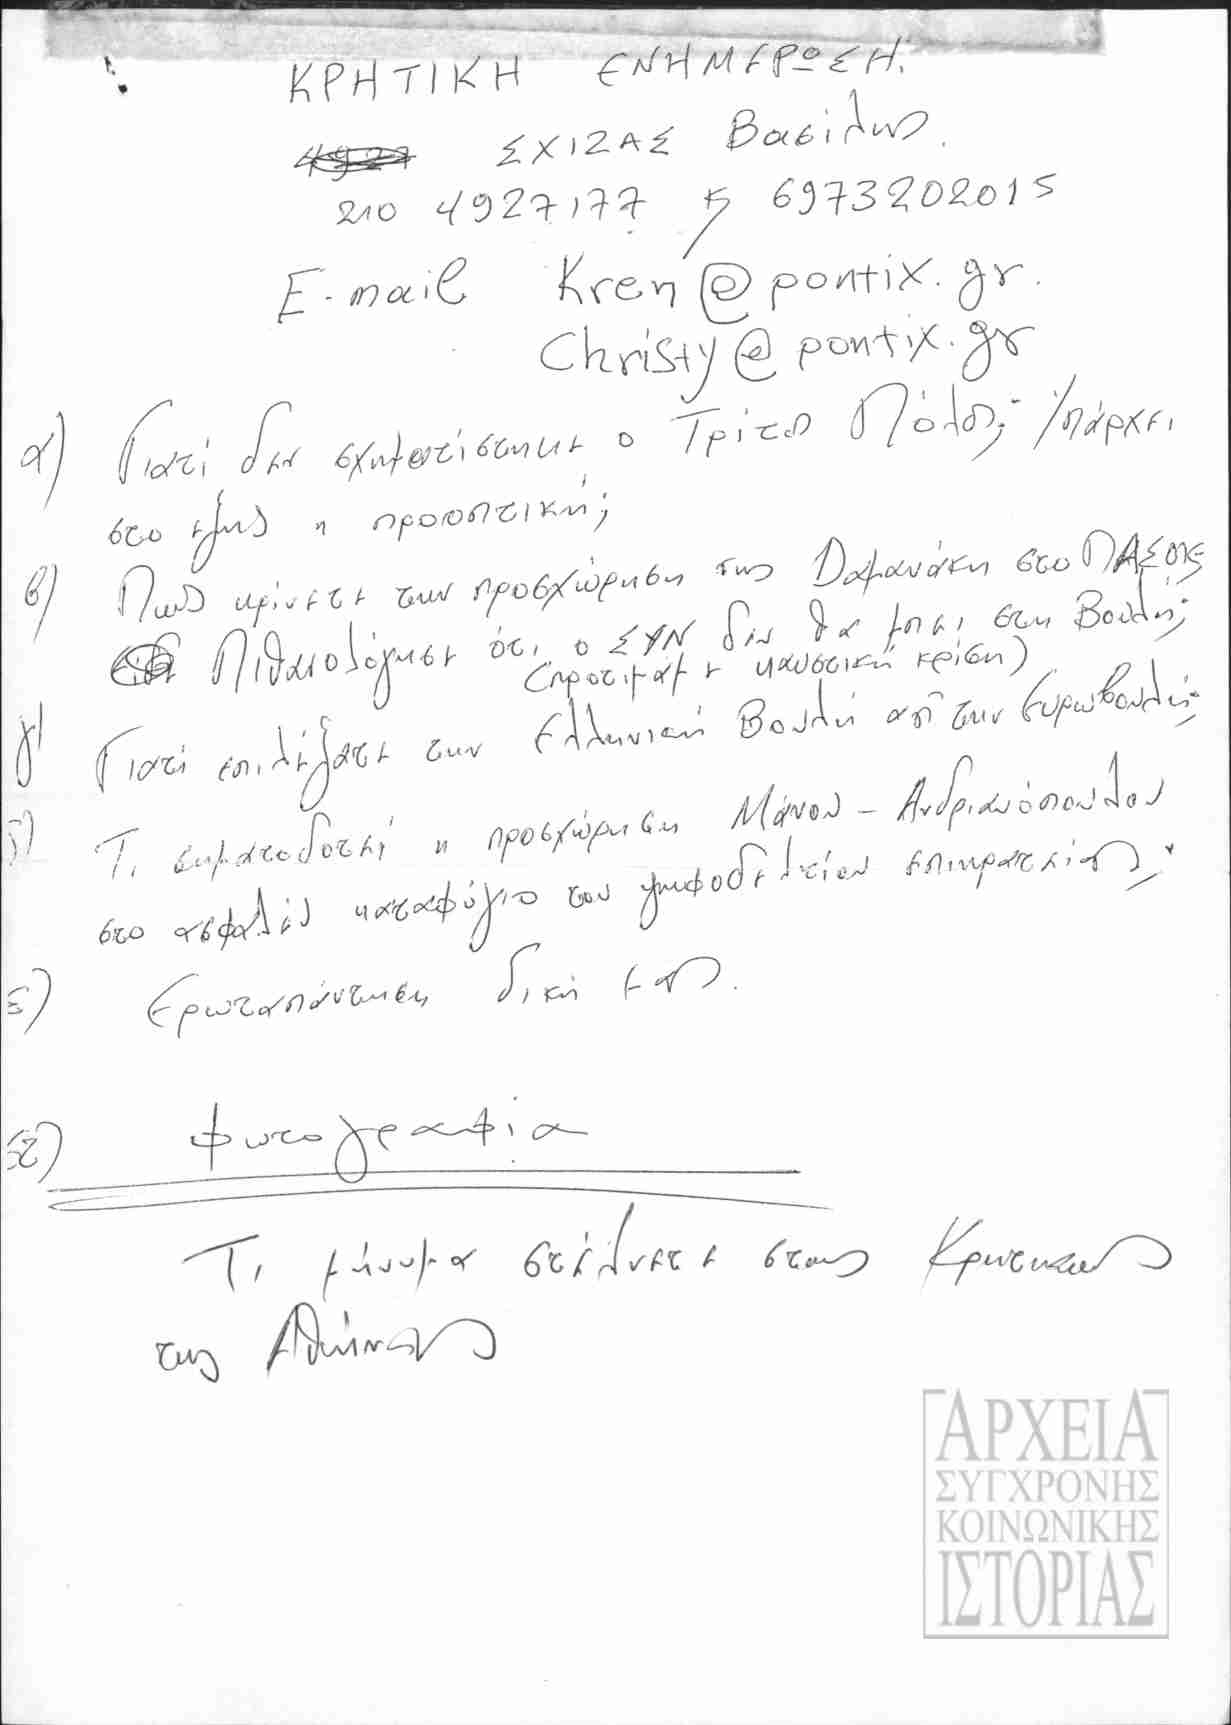 ΚΡΗΤΙΚΗ ΕΝΗΜΕΡΩΣΗ.
ΣΧΙΖΑΣ Βασίλης.
210 4927177 ἤ 6973202015
E-mail Kren@pontix.gr.
Christy@pontix.gr
α) Γιατί δεν σχηματίστηκε ο Τρίτος Πόλος; Υπάρχει
στο εξής η προοπτική;
β) Πως κρίνετε την προσχώρηση της Δαμανάκη στο ΠΑΣΟΚ
Πιθανολόγησε ότι ο ΣΥΝ δεν θα μπει στη Βουλή;
(προτιμάμε καυστική κρίση)
γ) Γιατί επιλέξατε την Ελληνική Βουλή από την Ευρωβουλή;
δ) Τι σηματοδοτεί η προσχώρηση Μάνου - Ανδριανόπουλου
στο ασφαλές καταφύγιο του ψηφοδελτίου επικρατείας;
ε) Ερωταπάντηση δική μας.
στ) φωτογραφία
Τι μήνυμα στέλνετε στους Κρητικούς
της Αθήνας
ΑΡΧΕΙΑ
ΣΥΓΧΡΟΝΗΣ
ΚΟΙΝΩΝΙΚΗΣ
ΙΣΤΟΡΙΑΣ